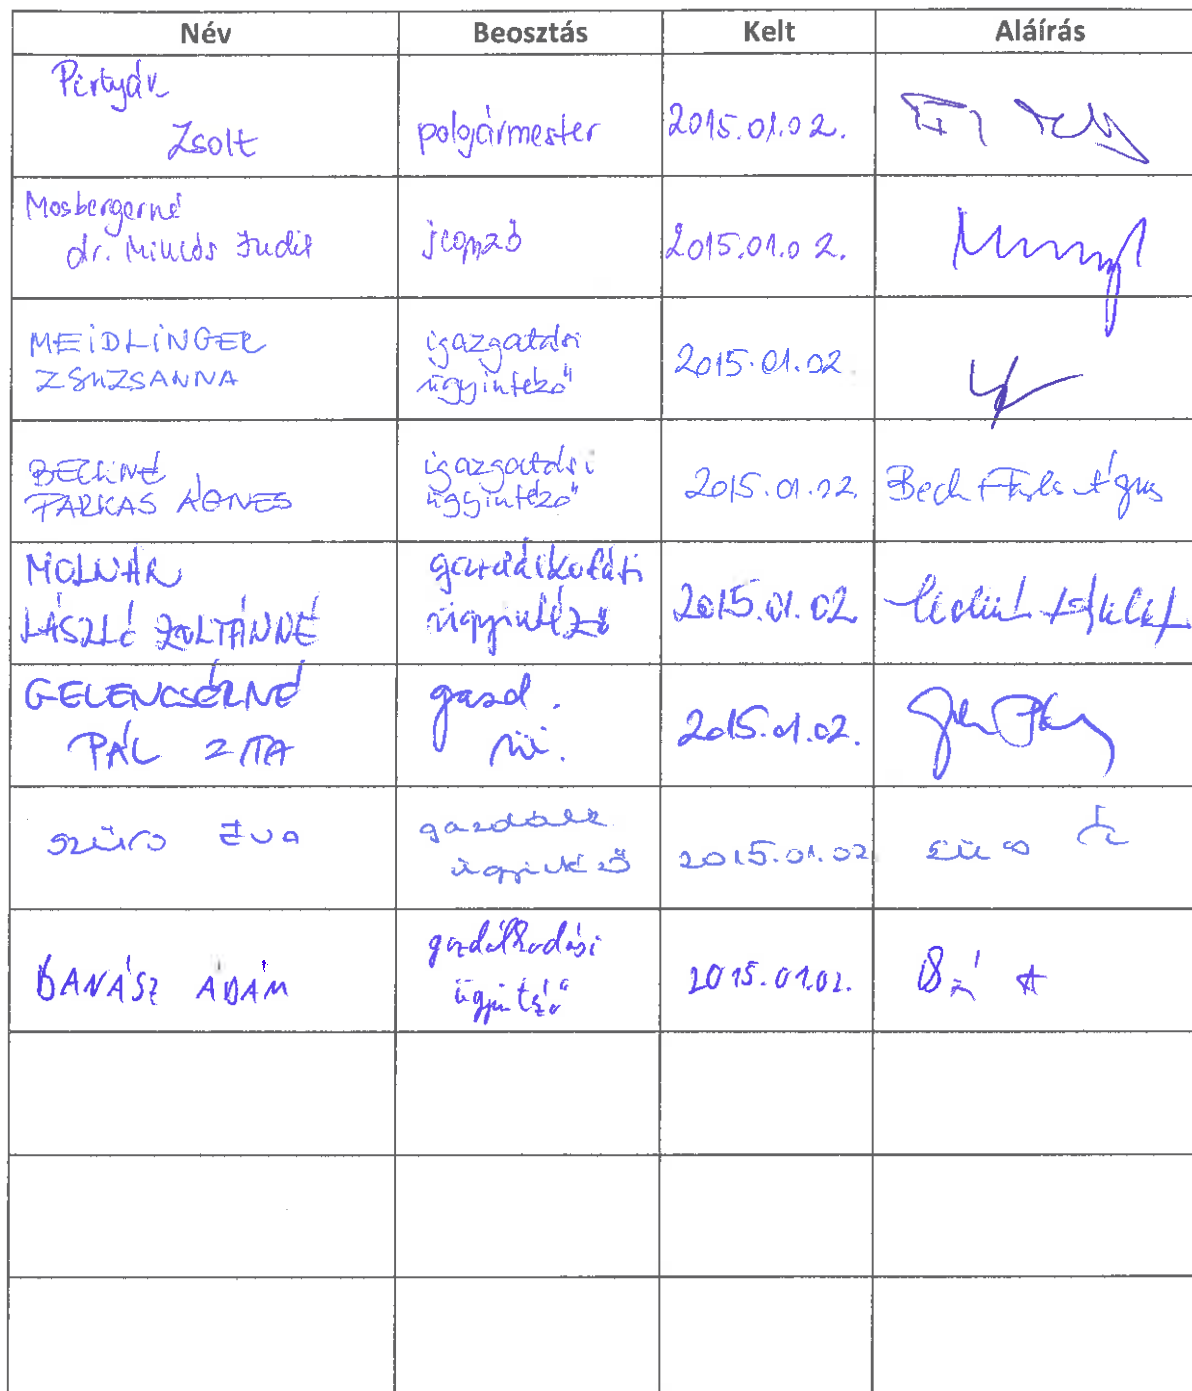 Név Beosztás Kelt Aláírás
Pirtyák
Zsolt
polgármester
2015.01.02.
Mosbergerné
dr. Miklós Judit
jegyző
2015.01.02.
MEIDLINGER
ZSUZSANNA
igazgatási
ügyintéző
2015.01.02
BECKNÉ
FARKAS ÁGNES
igazgatási
ügyintéző
2015.01.02.
MOLNÁR
LÁSZLÓ ZOLTÁNNÉ
gazdálkodási
ügyintéző
2015.01.02
GELENCSÉRNÉ
PÁL ZITA
gazd.
üi.
2015.01.02.
Szűrő Éva
gazdálk
ügyintéző
2015.01.02
BANÁSZ ÁDÁM
gazdálkodási
ügyintéző
2015.01.02.